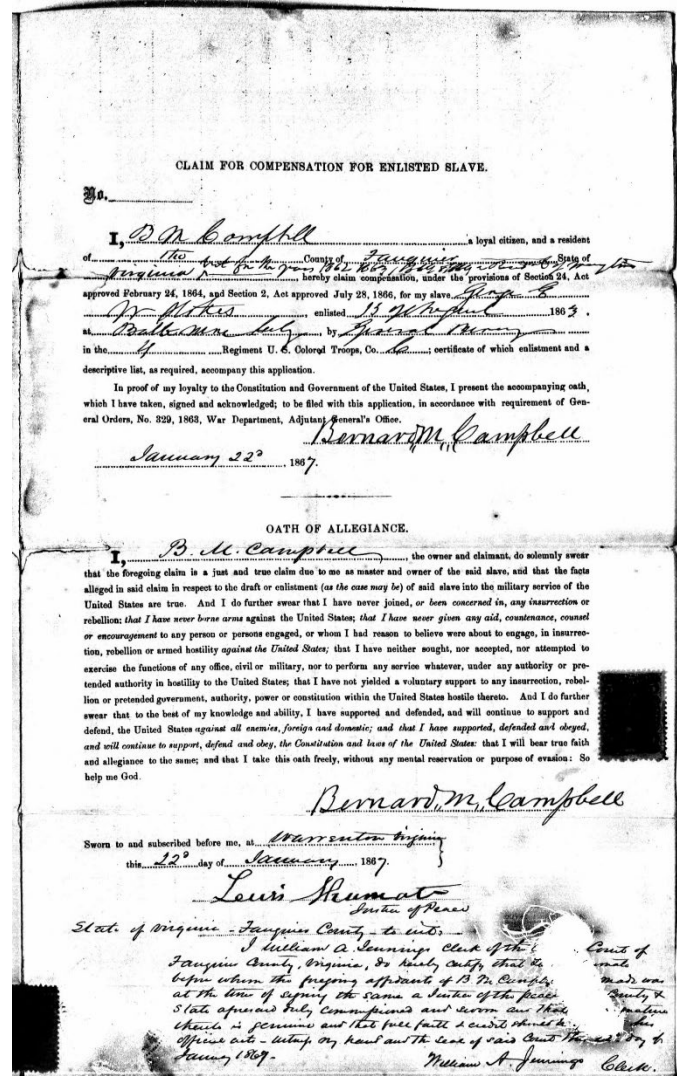 CLAIM FOR COMPENSATION FOR ENLISTED SLAVE.
No.
I, B M Campbell a loyal citizen, and a resident
of the County of Fauquier State of
Virginia hereby claim compensation, under the provisions of Section 24, Act
approved February 24, 1864, and Section 2, Act approved July 28, 1866, for my slave George E
W Stokes, enlisted 15 1863.
at Baltimore City, by General Birney
in the 4 Regiment U. S. Colored Troops, Co. C; certificate of which enlistment and a
descriptive list, as required, accompany this application.
In proof of my loyalty to the Constitution and Government of the United States, I present the accompanying oath,
which I have taken, signed and acknowledged; to be filed with this application, in accordance with requirement of Gen-
eral Orders, No. 329, 1863, War Department, Adjutant General's Office.
Bernard, M, Campbell
January 22d, 1867.
OATH OF ALLEGIANCE.
I, B. M. Campbell, the owner and claimant, do solemnly swear
that the foregoing claim is a just and true claim due to me as master and owner of the said slave, and that the facts
alleged in said claim in respect to the draft or enlistment (as the case may be) of said slave into the military service of the
United States are true. And I do further swear that I have never joined, or been concerned in, any insurrection or
rebellion; that I have never borne arms against the United States; that I have never given any aid, countenance, counsel
or encouragement to any person or persons engaged, or whom I had reason to believe were about to engage, in insurrec-
tion, rebellion or armed hostility against the United States; that I have neither sought, nor accepted, nor attempted to
exercise the functions of any office, civil or military, nor to perform any service whatever, under any authority or pre-
tended authority in hostility to the United States; that I have not yielded a voluntary support to any insurrection, rebel-
lion or pretended government, authority, power or constitution within the United States hostile thereto. And I do further
swear that to the best of my knowledge and ability, I have supported and defended, and will continue to support and
defend, the United States against all enemies, foreign and domestic; and that I have supported, defended and obeyed,
and will continue to support, defend and obey, the Constitution and laws of the United States: that I will bear true faith
and allegiance to the same; and that I take this oath freely, without any mental reservation or purpose of evasion: So
help me God.
Bernard, M, Campbell
Sworn to and subscribed before me, at Warrenton Virginia
this 22d day of January, 1867.
Lewis Shumate
Justice of Peace
State of Virginia - Fauquier County - to wit:
I William A. Jennings Clerk of the Court of
Fauquier County, Virginia, do hereby certify that
before whom the foregoing affidavits of B. M. Campbell made was
at the time of signing the same a Justice of the peace County &
State aforesaid duly commissioned and sworn and that
thereto is genuine and that full faith & credit
official acts - witness my hand and the seal of said Court day of
January 1867.
William A. Jennings Clerk.